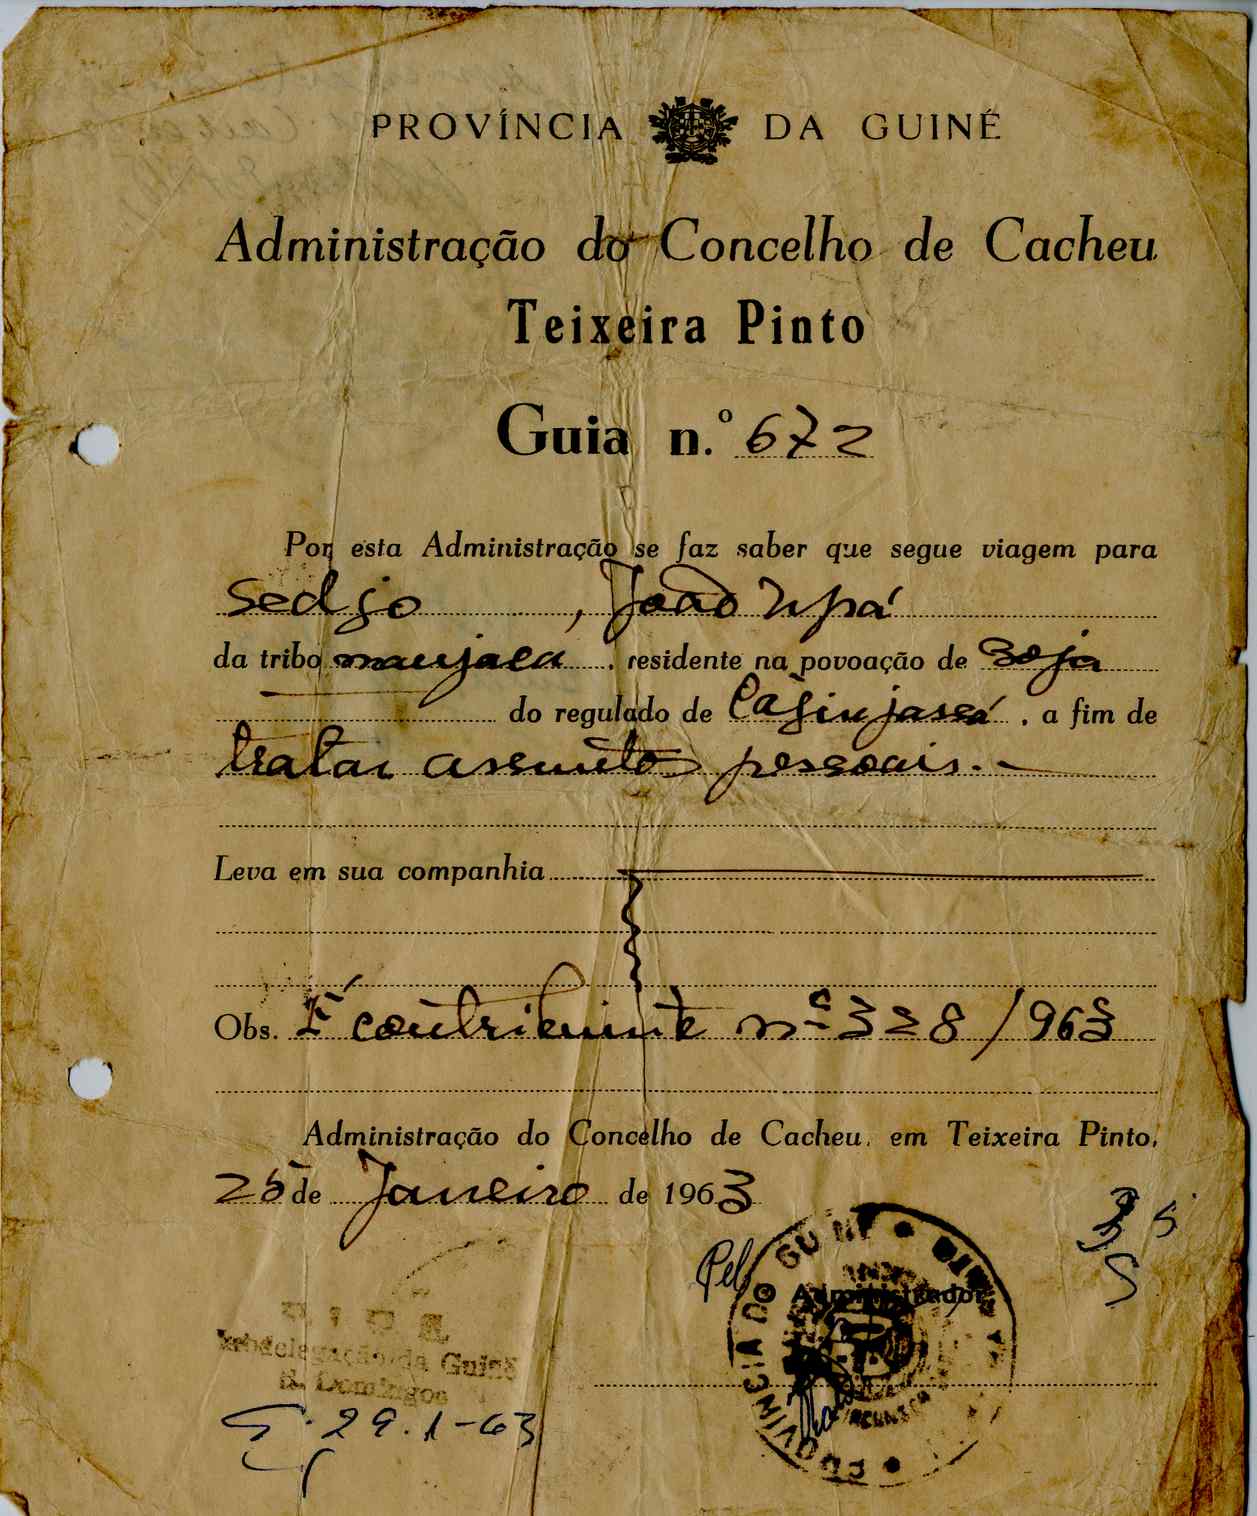 PROVÍNCIA DA GUINÉ
Administração do Concelho de Cacheu
Teixeira Pinto
Guia n.º 672
Por esta Administração se faz saber que segue viagem para
Sedjo, João Upá
da tribo manjaca, residente na povoação de Beja
do regulado de, a fim de
tratar assuntos pessoais.-
Leva em sua companhia
Obs. É contribuinte nº 328/963
Administração do Concelho de Cacheu, em Teixeira Pinto,
25 de Janeiro de 1963
Pel O Administrador
PROVÍNCIA DO GUINÉ
P. I. D. E.
Subdelegação da Guiné
S. Domingos
29.1-63